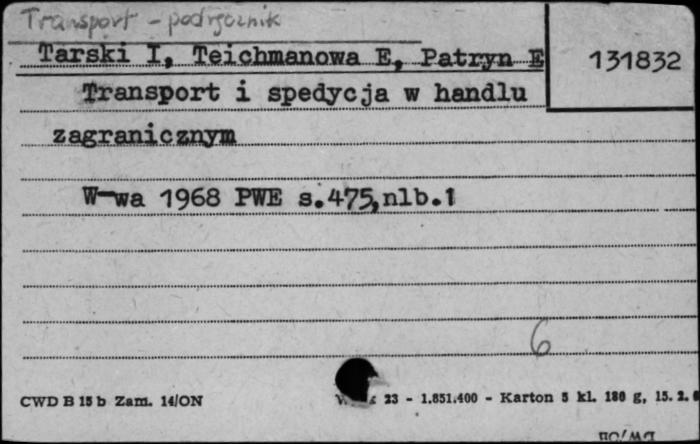 Transport - podręcznik
Tarski I, Teichmanowa E, Patryn E
131832
Transport i spedycja w handlu
zagranicznym
W-wa 1968 PWE s.475,nlb.1
6
CWD B 15 b Zam. 14/ON
23 - 1.851.400 - Karton 5 kl. 180 g, 15. 2. 6